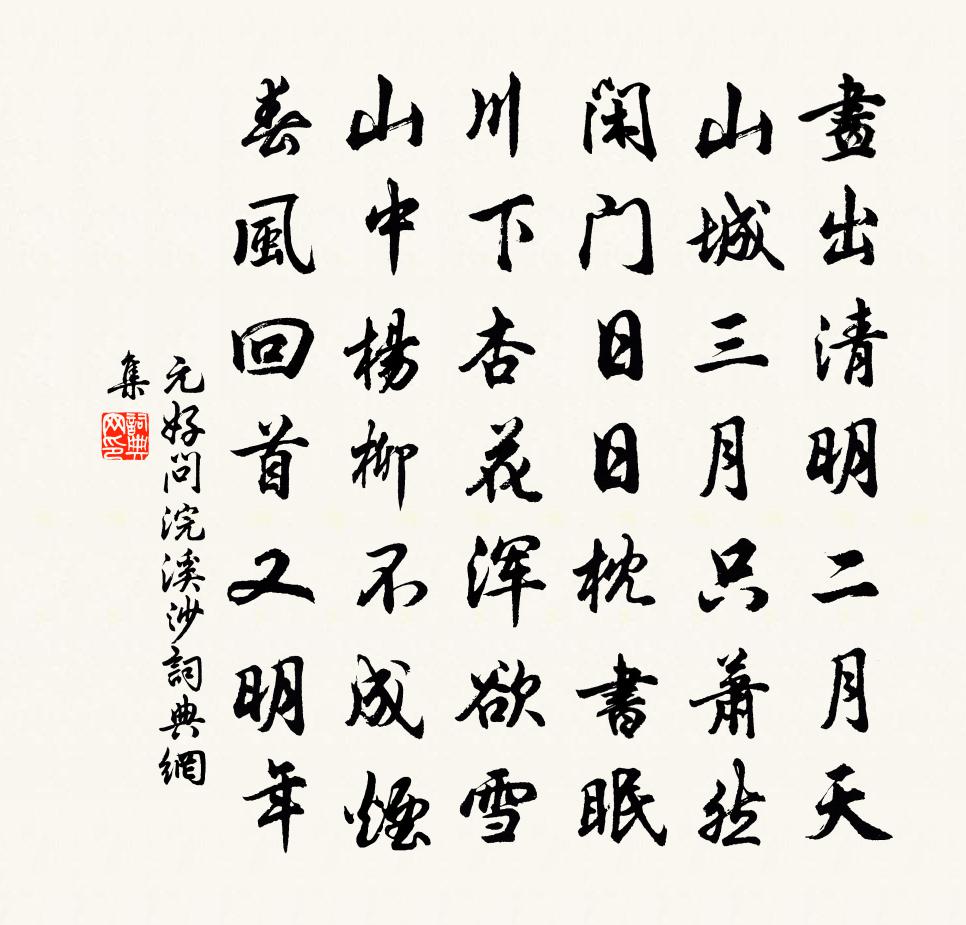 畫出清明二月天
山城三月只蕭然
閑门日日枕書眠
川下杏花渾欲雪
山中楊柳不成煙
春風回首又明年
元好问浣溪沙詞典網
集
詞典
网印